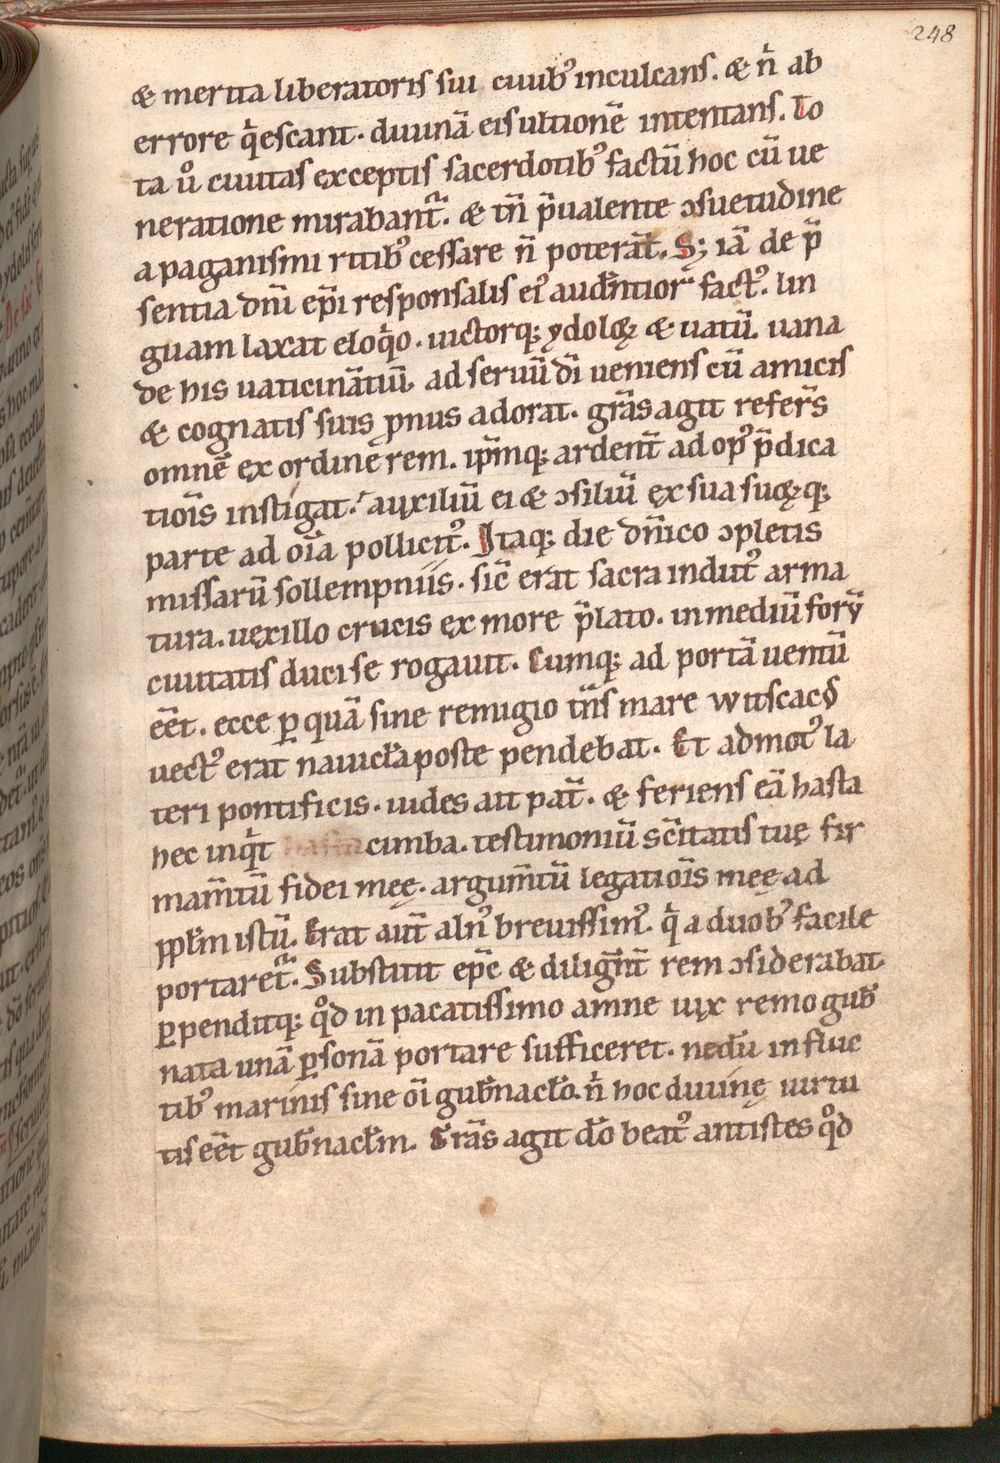 248
& merita liberatoris sui ciuib᷒ inculcans. & n̄ ab
errore q̄escant. diuinā eis ultionē intentans. To
ta u͛o ciuitas exceptis sacerdotib᷒ factū hoc cū ue
neratione mirabant᷑. & tn̄ p̄ualente ↄsuetudine
a paganismi ritib᷒ cessare n̄ poterāt. S; iā de p̄
sentia dn̄i ep̄i responsalis ei᷒ audn̄tior fact᷒. lin
guam laxat eloq̄o. uictorq; ydoloꝝ & uatū uana
de his uaticinātiū, ad seruū dī ueniens cū amicis
& cognatis suis pronus adorat. grās agit refer̄s
omnē ex ordine rem. ip̄mq; ardent̄ ad op᷒ p̄dica
tiōis instigat. auxiliū ei & ↄsiliū ex sua suoꝝq;
parte ad oīa pollicit᷒. Itaq; die dn̄ico ↄpletis
missarū sollempniis. sic̄ erat sacra indut᷒ arma
tura. uexillo crucis ex more p̄lato. in mediū forū
ciuitatis duci se rogauit. Cumq; ad portā uentū
eēt. ecce ꝑ quā sine remigio tn̄s mare witscacꝰ
uect᷒ erat nauicl̄a poste pendebat. Et admot᷒ la
teri pontificis. uides ait pat̄. & feriens eā hasta
hec inq̄t cimba. testimoniū sc̄itatis tuę fir
mam̄tū fidei meę. argum̄tū legatiōis meę ad
ppl̄m istū. Erat aut̄ aln᷒ breuissim᷒. q̄ a duob᷒ facile
portaret᷑. Substitit ep̄c & diliḡnt̄ rem ↄsiderabat.
ꝑpenditq; q̄d in pacatissimo amne uix remo gub̄
nata unā ꝑsonā portare sufficeret. nedū in fluc
tib᷒ marinis sine oī gub̄nacl̄o. n̄ hoc diuinę uirtu
tis eēt gub̄nacl̄m. Grās agit dō beat᷒ antistes q̄d